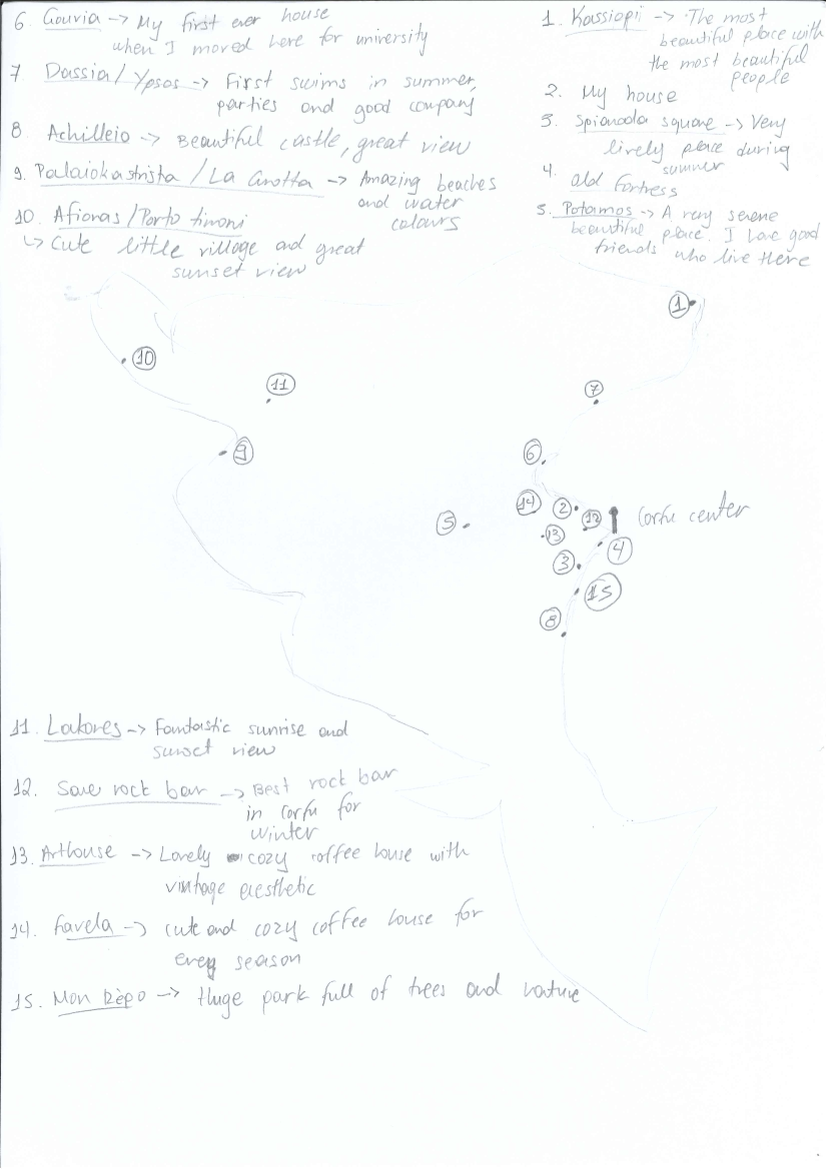 6. Gouvia -> My first ever house
when I moved here for university
7 Dassia/Ypsos -> First swims in summer,
parties and good company
8. Achilleio -> Beautiful castle, great view
9. Palaiokastrista / La Grotta -> Amazing beaches
and water
colours
10. Afionas/Porto timoni
↳ Cute little village and great
sunset view
1. Kassiopii -> The most
beautiful place with
the most beautiful
people
2. My house
3. Spianada square -> Very
lively place during
summer
4. old fortress
5. Potamos -> A very serene
beautiful place. I have good
friends who live there
1
10
11
7
9
6
14
2
12
Corfu center
5
13
4
3
15
8
11. Lakones -> Fantastic sunrise and
sunset view
12. Save rock bar -> Best rock bar
in Corfu for
winter
13. Arthouse -> Lovely cozy coffee house with
vintage aesthetic
14. Favela -> cute and cozy coffee house for
every season
15. Mon Repo -> Huge park full of trees and nature